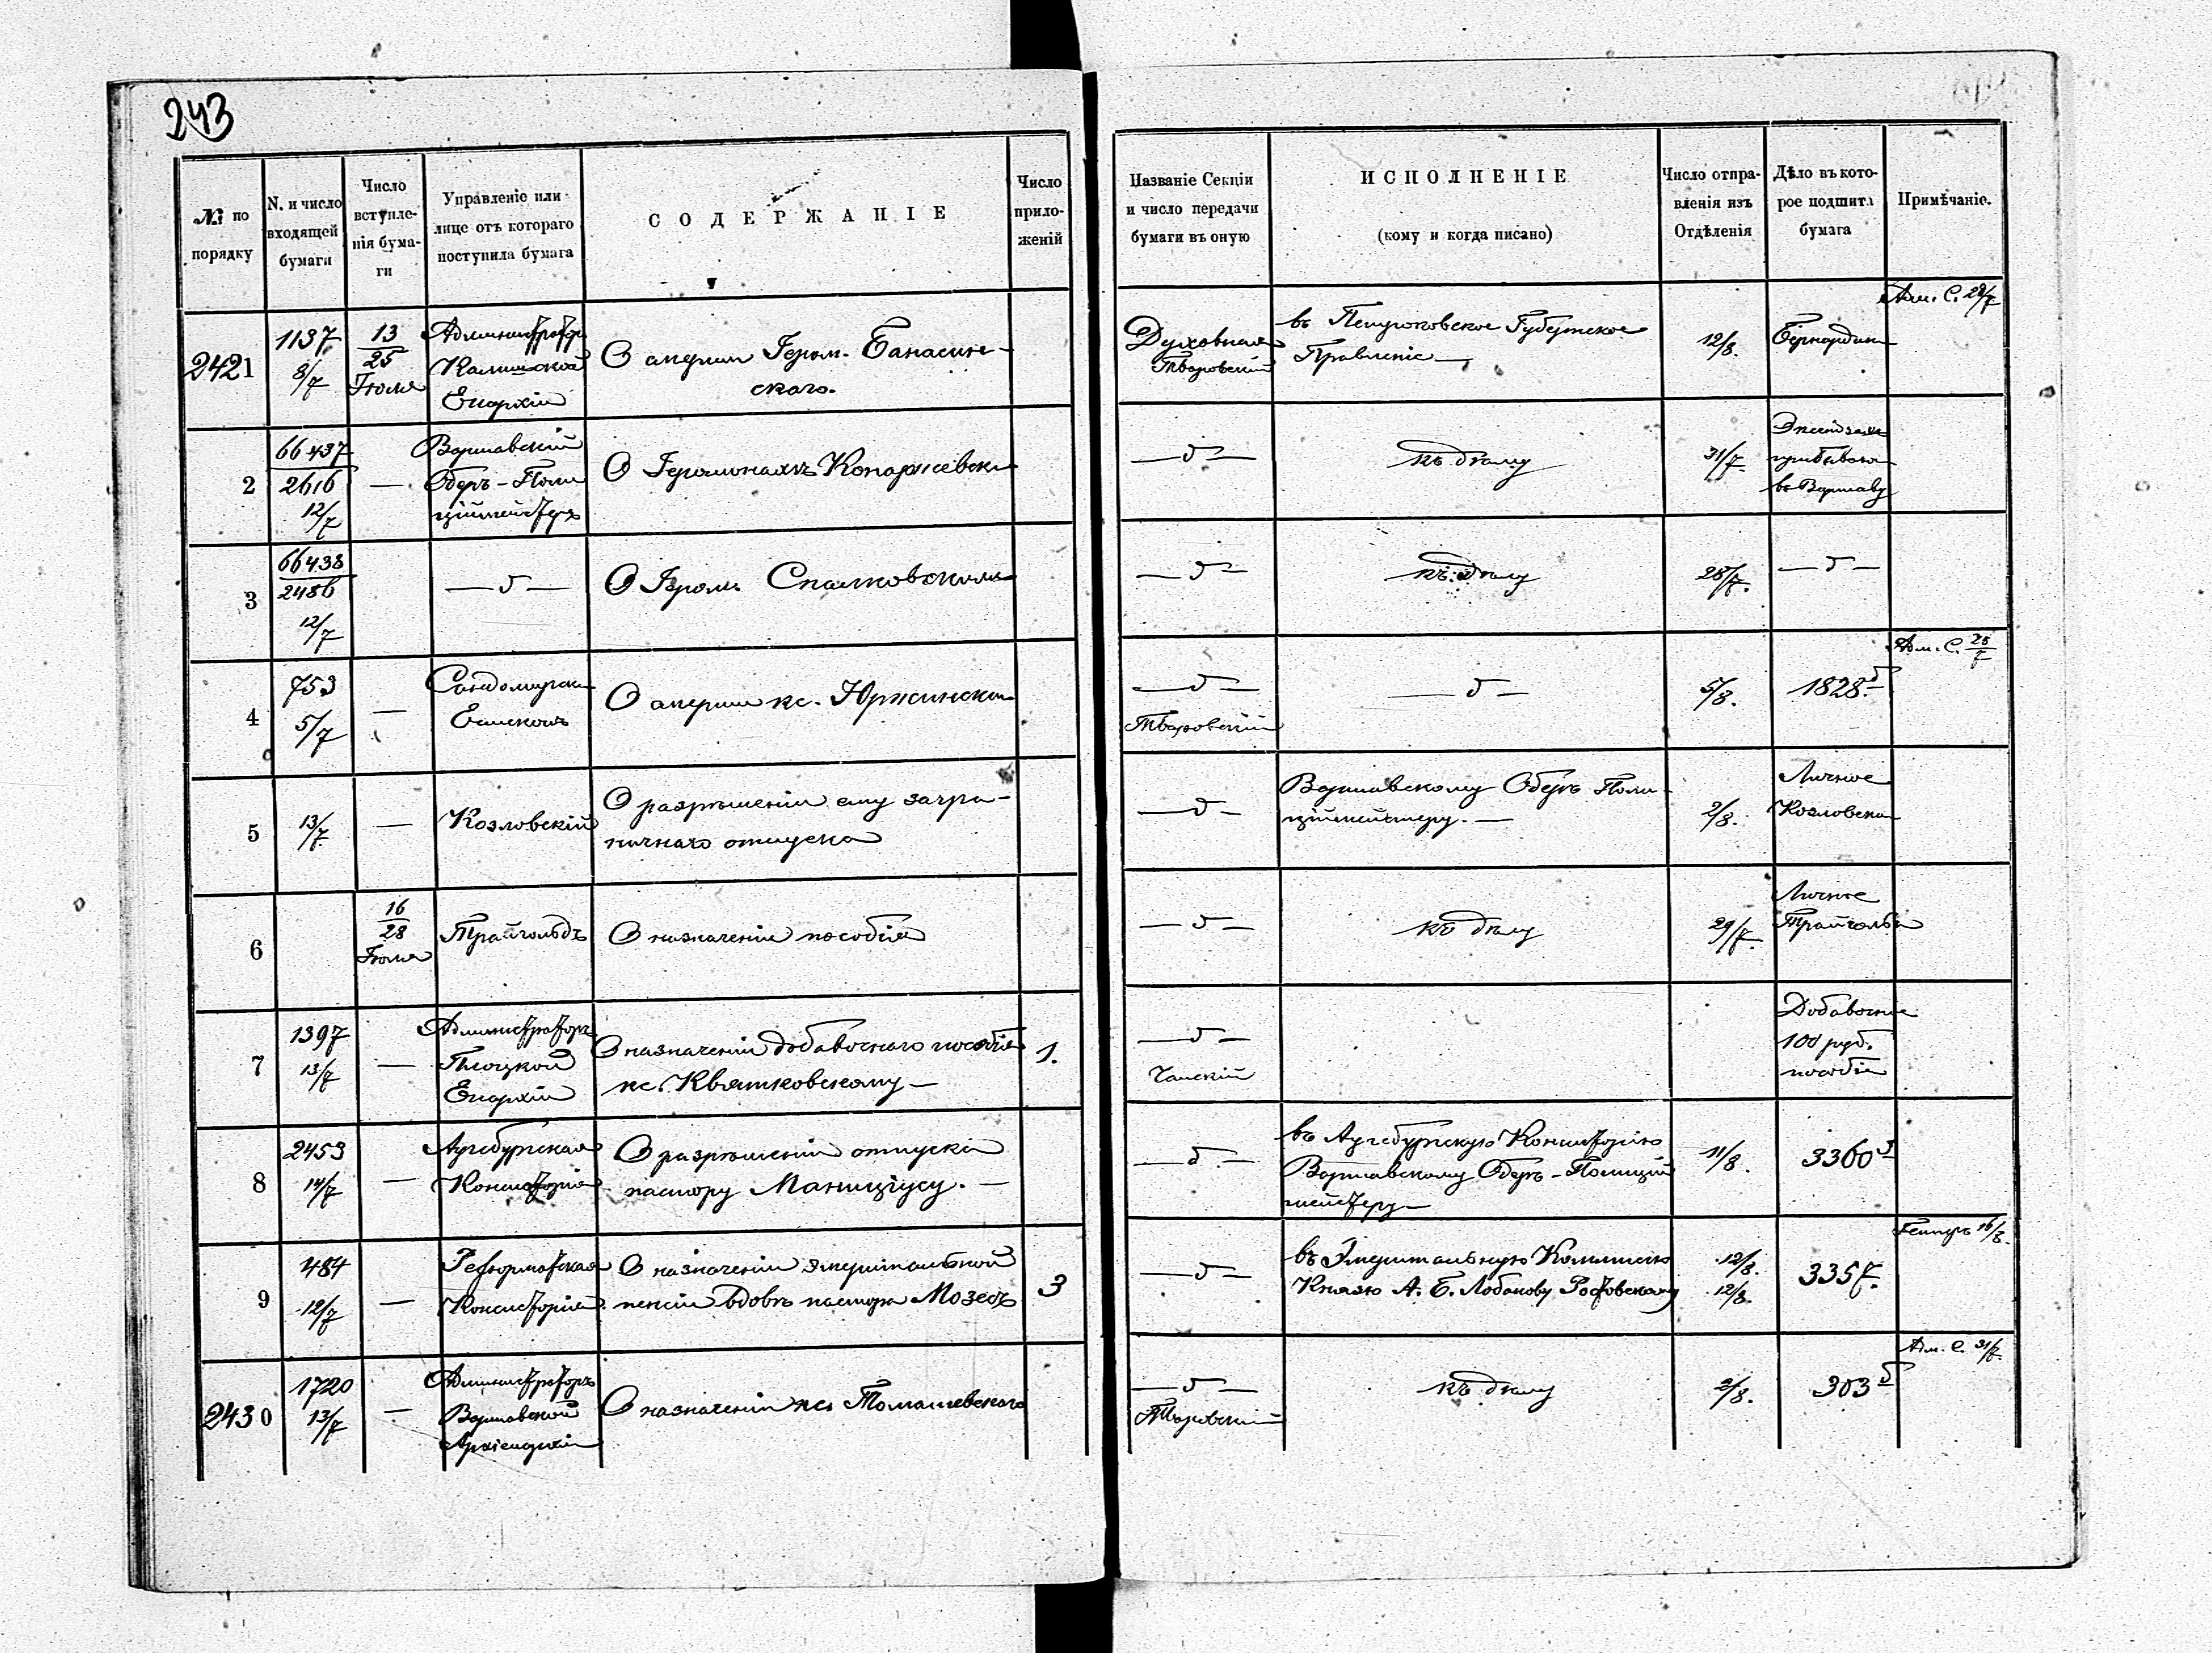 243
№ по порядку
N. и число входящей бумаги
Число вступленія бумаги
Управленіе или лице отъ котораго поступила бумага
СОДЕРЖАНІЕ
Число приложеній
Названіе Секціи и число передачи бумаги въ оную
ИСПОЛНЕНІЕ
(кому и когда писано)
Число отправленія изъ Отдѣленія
Дѣло въ которое подшита бумага
Примѣчаніе.
2421
1137
8/7
13/25 Іюля
Администраторъ
Калишской
Епархіи
О смерти Іером. Банасин-
скаго.
Духовная
Тваровскій
въ Петроковское Губернское
Правленіе —
12/8.
Бернардин
Адм. С. 28/7
2
66437
2616
12/7
—
Варшавскій
Оберъ-Поли
ціймейстеръ
О Іеромонахѣ Копаржевск
— д —
къ дѣлу
31/7.
прибыван
въ Варшаву
3
66438
2486
12/7
— д —
О Іером.
— д —
къ дѣлу
28/7.
— д —
4
753
5/7
—
Сандомирскій
Епископъ
О смерти кс. Юржинск
— д —
Тваровскій
— д —
5/8.
1828 д
Адм. С. 28/7
5
13/7
—
Козловскій
О разрѣшеніи ему загра-
ничнаго отпуска
— д —
Варшавскому Оберъ Поли-
ціймейстеру. —
2/8.
Личное
Козловска
6
16/28 Іюля
Трайгольдъ
О назначеніи пособія
— д —
къ дѣлу
29/7.
Личное
Трайгольда
7
1397
13/7
—
Администраторъ
Плоцкой
Епархіи
О назначеніи добавочнаго пособія
кс. Квятковскому —
1.
— д —
Чапскій
Добавочные
100 руб.
пособіе
8
2453
14/7
—
Аугсбургская
Консисторія
О разрѣшеніи отпуска
пастору Маниціусу. —
— д —
въ Аугсбургскую Консисторію
Варшавскому Оберъ-Полицій
мейстеру —
11/8.
3360
9
484
12/7
—
Реформатская
Консисторія
О назначеніи эмеритальной
пенсіи вдовѣ пастора Мозесъ
3
— д —
въ Эмеритальную Коммисію
Князю А. Б. Лобанову Ростовскому
12/8.
12/8.
3357.
16/8.
2430
1720
13/7
—
Администраторъ
Варшавской
Архіепархіи
О назначеніи кс. Томашевскаго
— д —
Тваровскій
къ дѣлу
2/8.
303 д
Адм. С. 31/7.